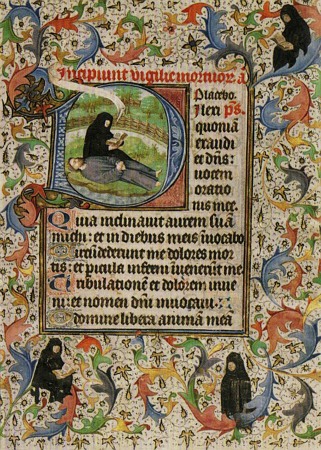 Incipiunt vigilie mortuor̄ a̅
Placebo.
Dilexi ps̄.
quoniā
exaudi
et dn̄s:
uocem
oratio
nis mee.
Quia inclinauit aurem suā
michi: et in diebus meis inuocabo
Circūdederunt me dolores mor
tis: et pīcula inferni inuenerūt me
Tribulationē et dolorem inue
ni: et nomen dn̄i inuocaui.
O domine libera animā meā